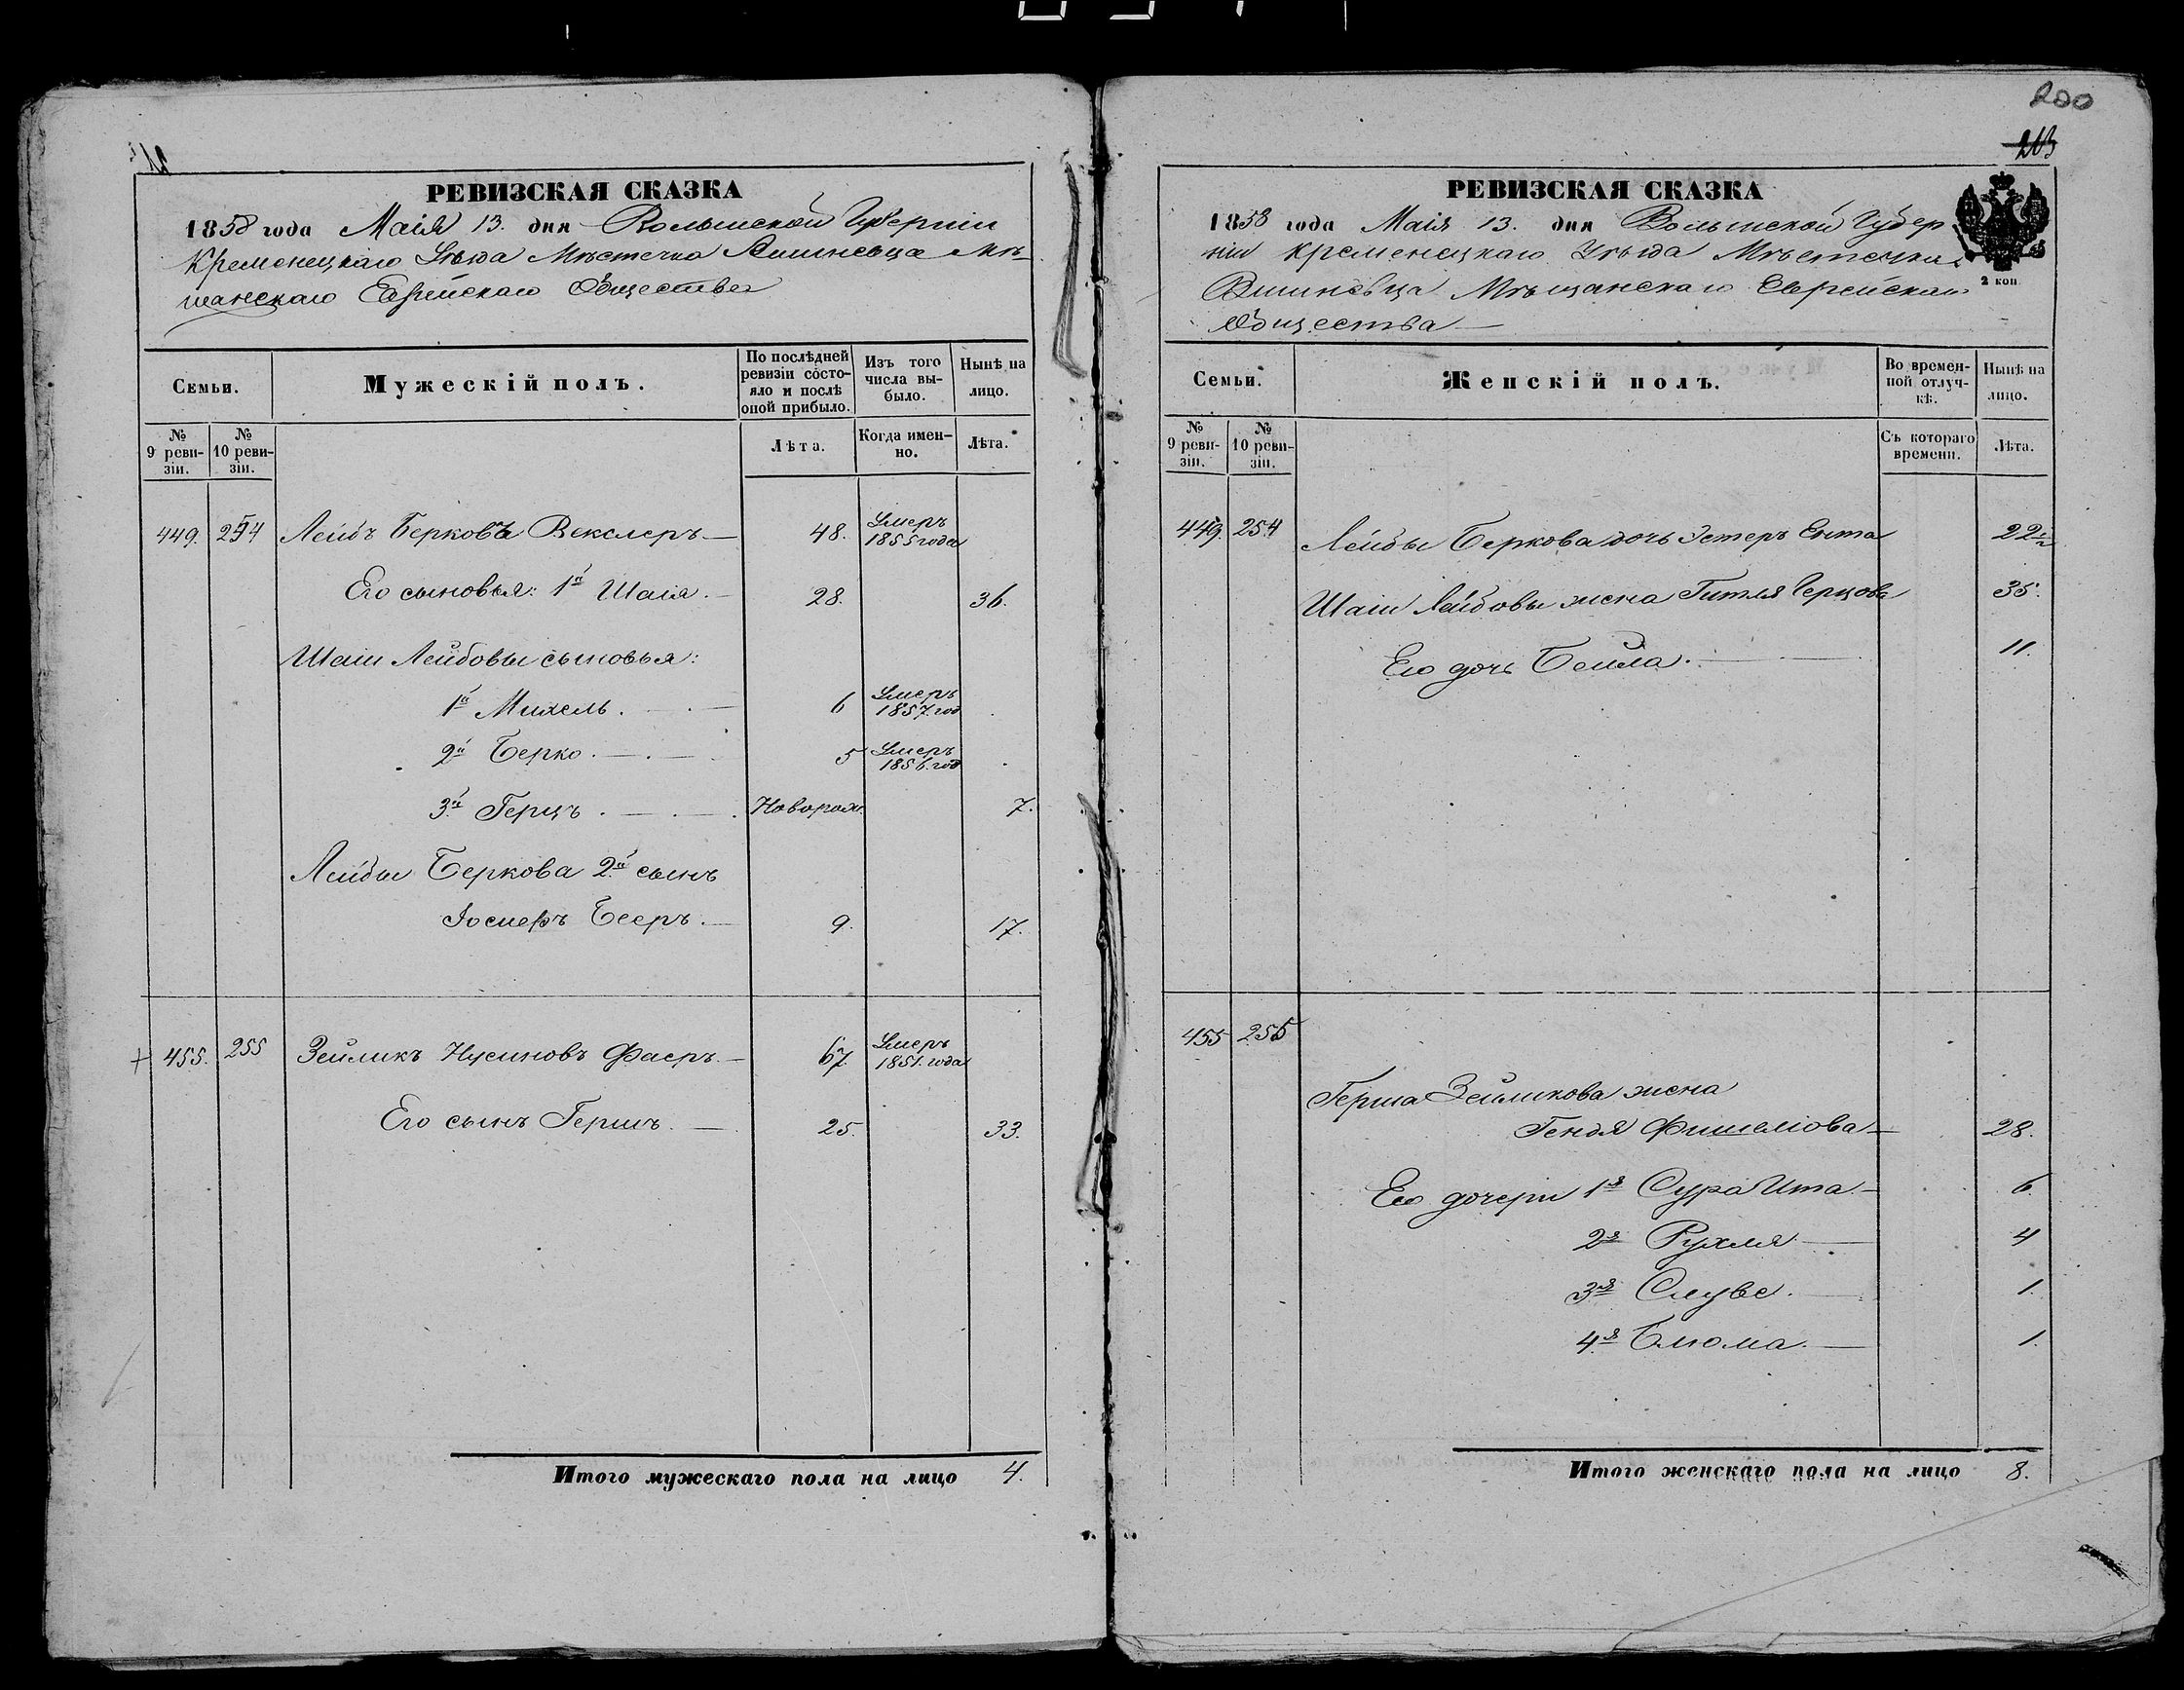 РЕВИЗСКАЯ СКАЗКА
1858 года Маія 13. дня Волынской Губерніи
Кременецкаго Уѣзда Мѣстечка Вишневца Мѣ-
щанскаго Еврейскаго Общества
Семьи.
Мужескій полъ.
По послѣдней
ревизіи состо-
яло и послѣ
оной прибыло.
Изъ того
числа вы-
было.
Нынѣ на
лицо.
№
9 реви-
зіи.
№
10 реви-
зіи.
Лѣта.
Когда имен-
но.
Лѣта.
449. 254 Лейбъ Берковъ Векслеръ 48. Умеръ
1855 года
Его сыновья: 1й Шаія. 28. 36.
Шаіи Лейбовы сыновья:
1й Михель. 6 Умеръ
1857 год
2й Берко. 5 Умеръ
1856. год
3й Герцъ. Новорож. 7.
Лейбы Беркова 2й сынъ
Іосифъ Бееръ. 9. 17.
455. 255 Зейликъ Нусиновъ Фаеръ. 67. Умеръ
1851. года
Его сынъ Гершъ. 25. 33.
Итого мужескаго пола на лицо 4.
200
213
РЕВИЗСКАЯ СКАЗКА
1858 года Маія 13. дня Волынской Губер
ніи Кременецкаго Уѣзда Мѣстечка
Вишневца Мѣщанскаго Еврейскаго
Общества
2 коп
Семьи.
Женскій полъ.
Во времен-
ной отлуч-
кѣ.
Нынѣ на
лицо.
№
9 реви-
зіи.
№
10 реви-
зіи.
Съ котораго
времени.
Лѣта.
449. 254 Лейбы Беркова дочь Эстеръ Ента 22½
Шаіи Лейбовы жена Гитля Герцова 35.
Ею дочь Бейла. 11.
455 255
Герша Зейликова жена
Гендя Фишелiова 28.
Ею дочери 1я Сура Ита. 6.
2я Рухля 4
3я Слуве. 1.
4я Блюма. 1.
Итого женскаго пола на лицо 8.